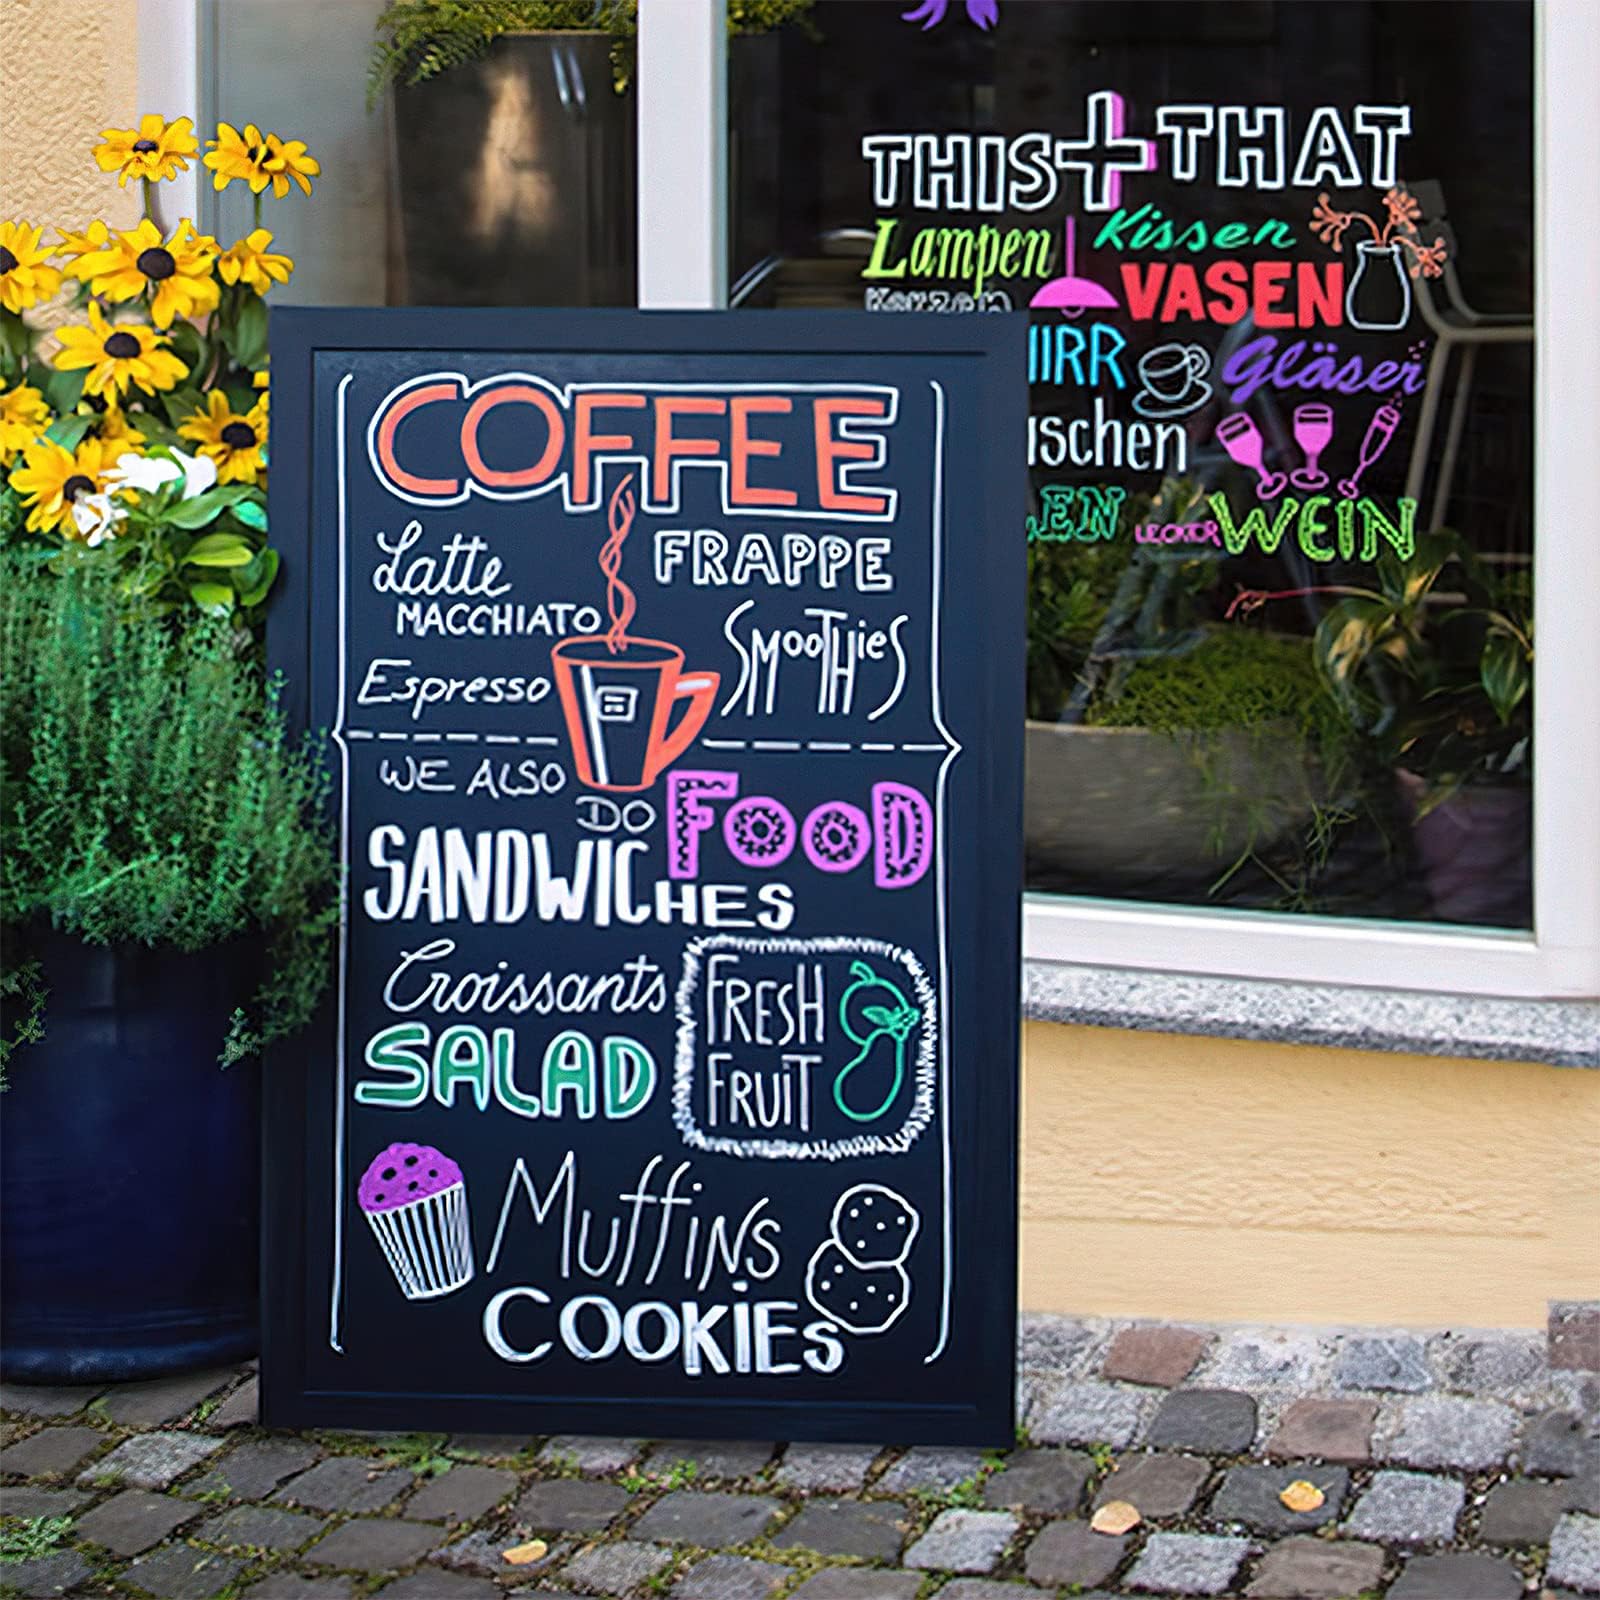 COFFEE
Latte
MACCHIATO
FRAPPE
Espresso
SMOOTHiES
WE ALSO
DO
FOOD
SANDWICHES
Croissants
SALAD
FRESH
FRUiT
Muffins
COOKiES
THIS+THAT
Lampen
Kissen
Kerzen
VASEN
HIRR
Gläser
schen
LEN
LECKER
WEIN